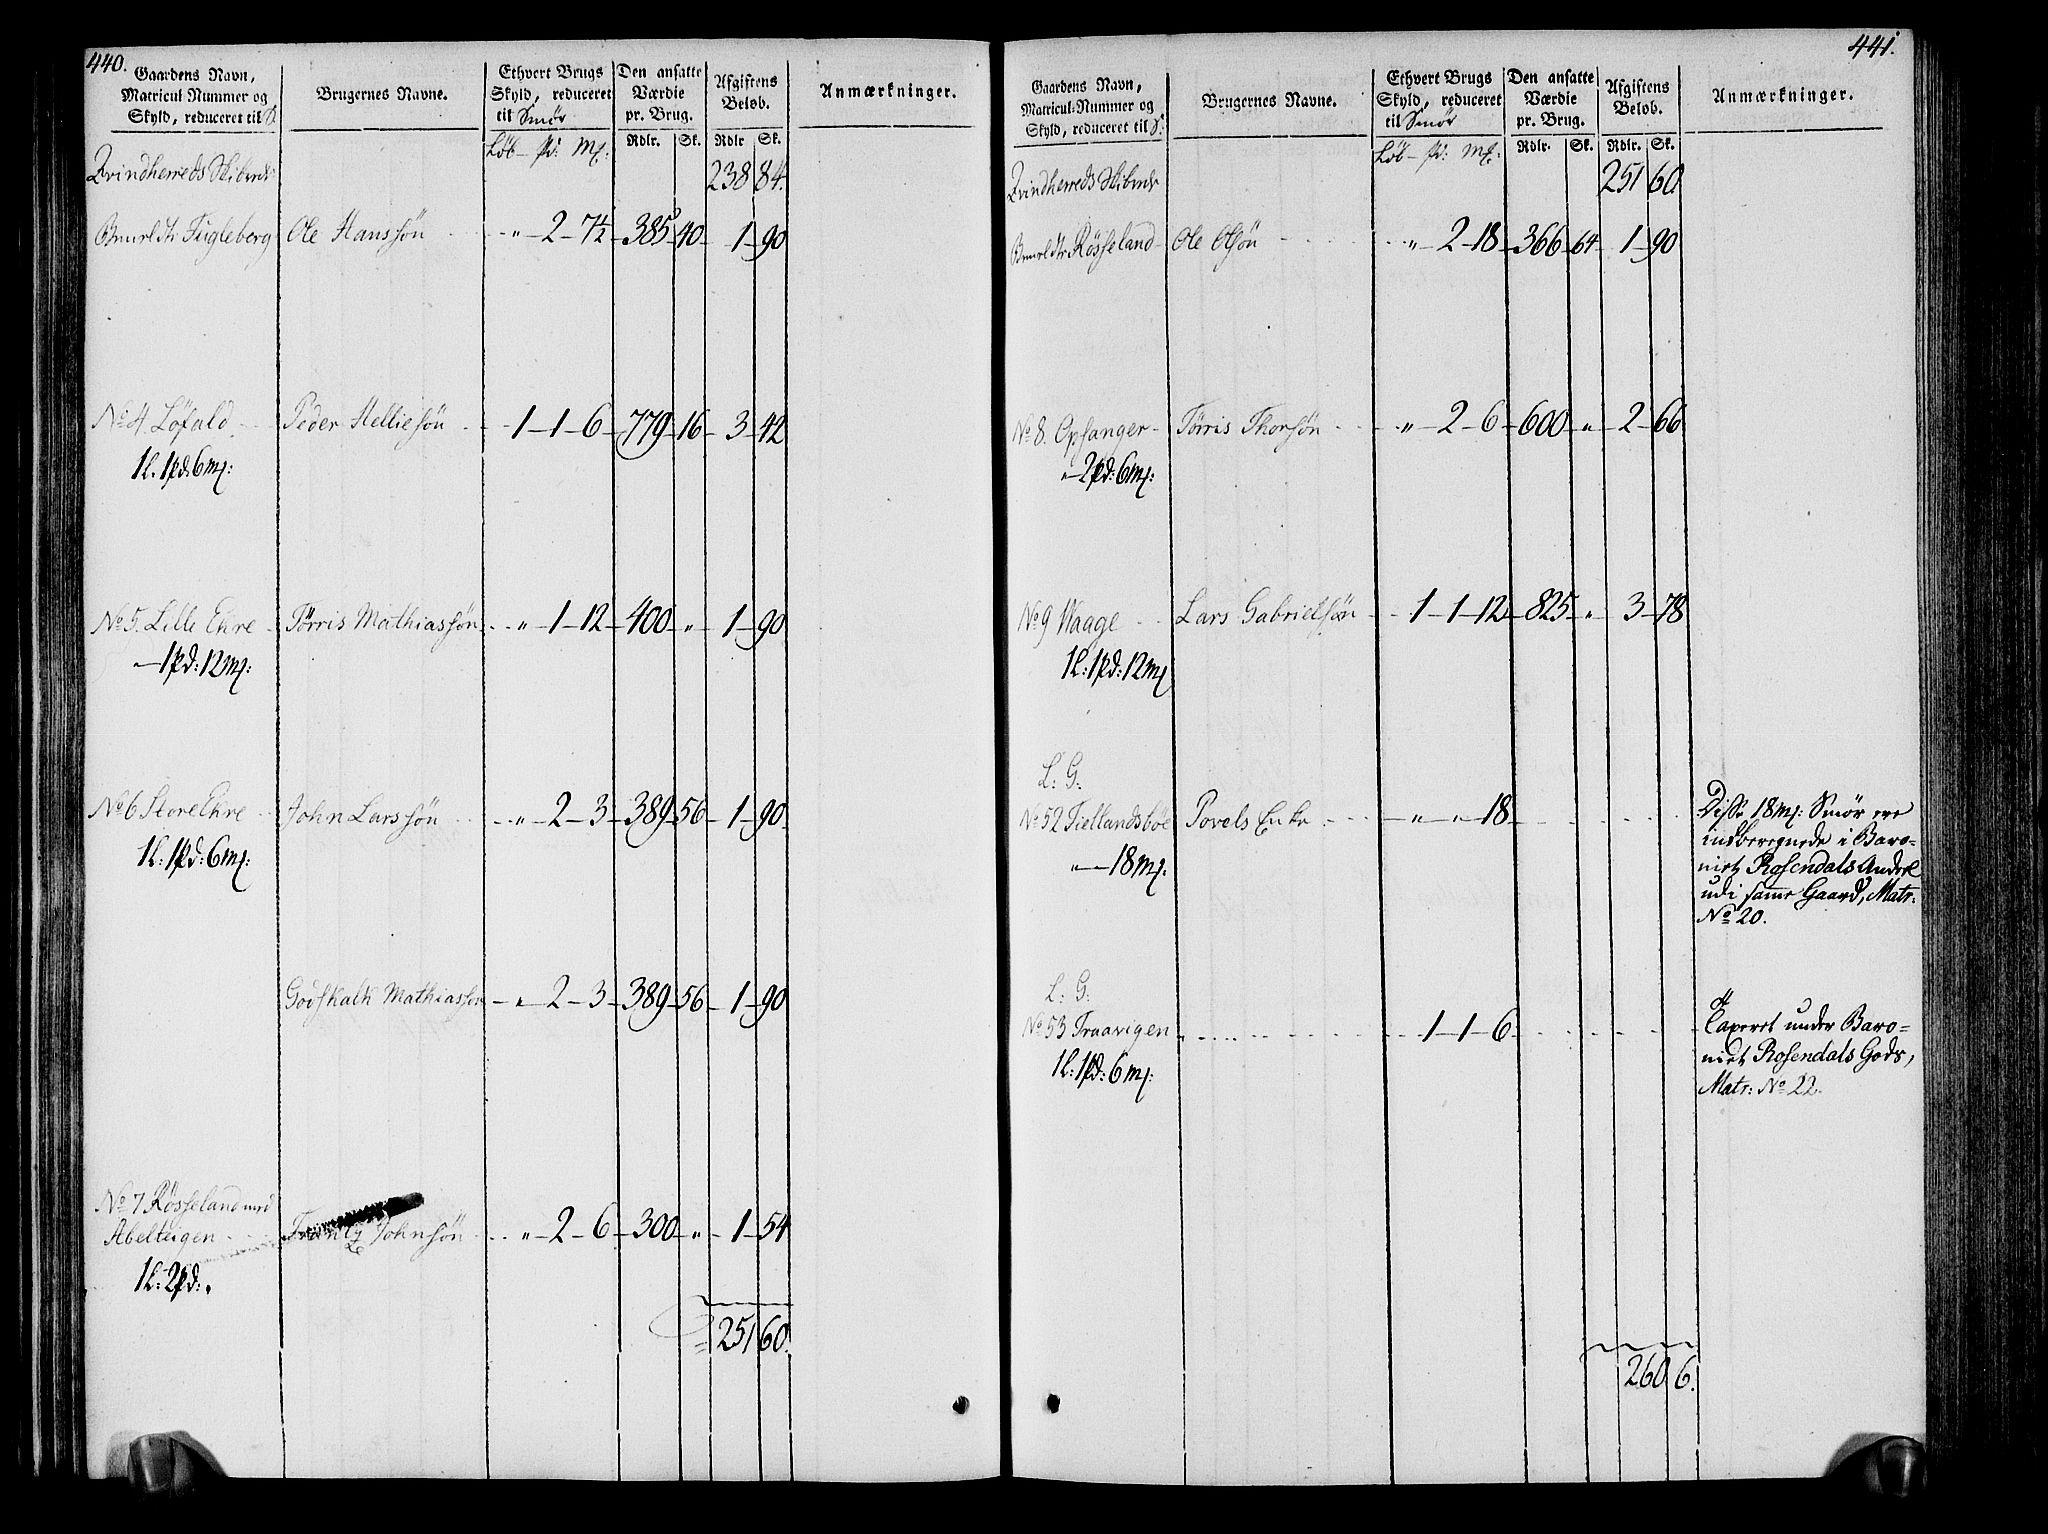 440.
Gaardens Navn, Matricul Nummer og Skyld, reduceret til S. | Brugernes Navne. | Ethvert Brugs Skyld, reduceret til Smør | Den ansatte Værdie pr. Brug. | Afgiftens Beløb. | Anmærkninger.
Løb — pd: Mk: | Rdlr. | Sk. | Rdlr | Sk.
Qvindherreds Skibrede 238 84.
Fugleberg Ole Hanssön " — 2 — 7½ — 385 — 40 — 1 — 90
No 4. Löfald Peder Helliesön 1 — 1 — 6 — 779 — 16 — 3 — 42
1l. 1pd: 6mk:
No 5. Lille Ehre Törris Mathiassön " — 1 — 12 — 400 — " — 1 — 90
" — 1pd: 12mk:
No 6 Store Ehre John Larssön " — 2 — 3 — 389 — 56 — 1 — 90
1l: 1pd: 6mk:
Godskalk Mathiassön " — 2 — 3 — 389 — 56 — 1 — 90
No 7 Rösseland med
Abelteigen Frantz Johnsön " — 2 — 6 — 300 — " — 1 — 54
1l: 2pd: "
251 60.
441.
Gaardens Navn, Matricul-Nummer og Skyld, reduceret til S. | Brugernes Navne. | Ethvert Brugs Skyld, reduceret til Smør | Den ansatte Værdie pr. Brug. | Afgiftens Beløb. | Anmærkninger.
Løb — pd: Mk: | Rdlr. | Sk. | Rdlr. | Sk.
Qvindherreds Skibrede 251 60
Rösseland Ole Olsön " — 2 — 18 — 366 — 64 — 1 — 90
No 8. Opsanger Törris Thorsön " — 2 — 6 — 600 — " — 2 — 66
" — 2pd: 6mk:
No 9 Waage Lars Gabrielsön 1 — 1 — 12 — 825 — " — 3 — 78
1l: 1pd: 12mk
L: G:
No 52 Fiellandsböe Povels Enke " — " — 18
" — 18mk.
Disse 18mk: Smör ere
indberegnede i Baro=
niet Rosendals Andel
udi samme Gaard, Matr:
No 20.
L: G:
No 53 Traavigen 1 — 1 — 6
1l: 1pd: 6mk:
Taxeret under Baro=
niet Rosendals Gods,
Matr: No 22.
260 6.